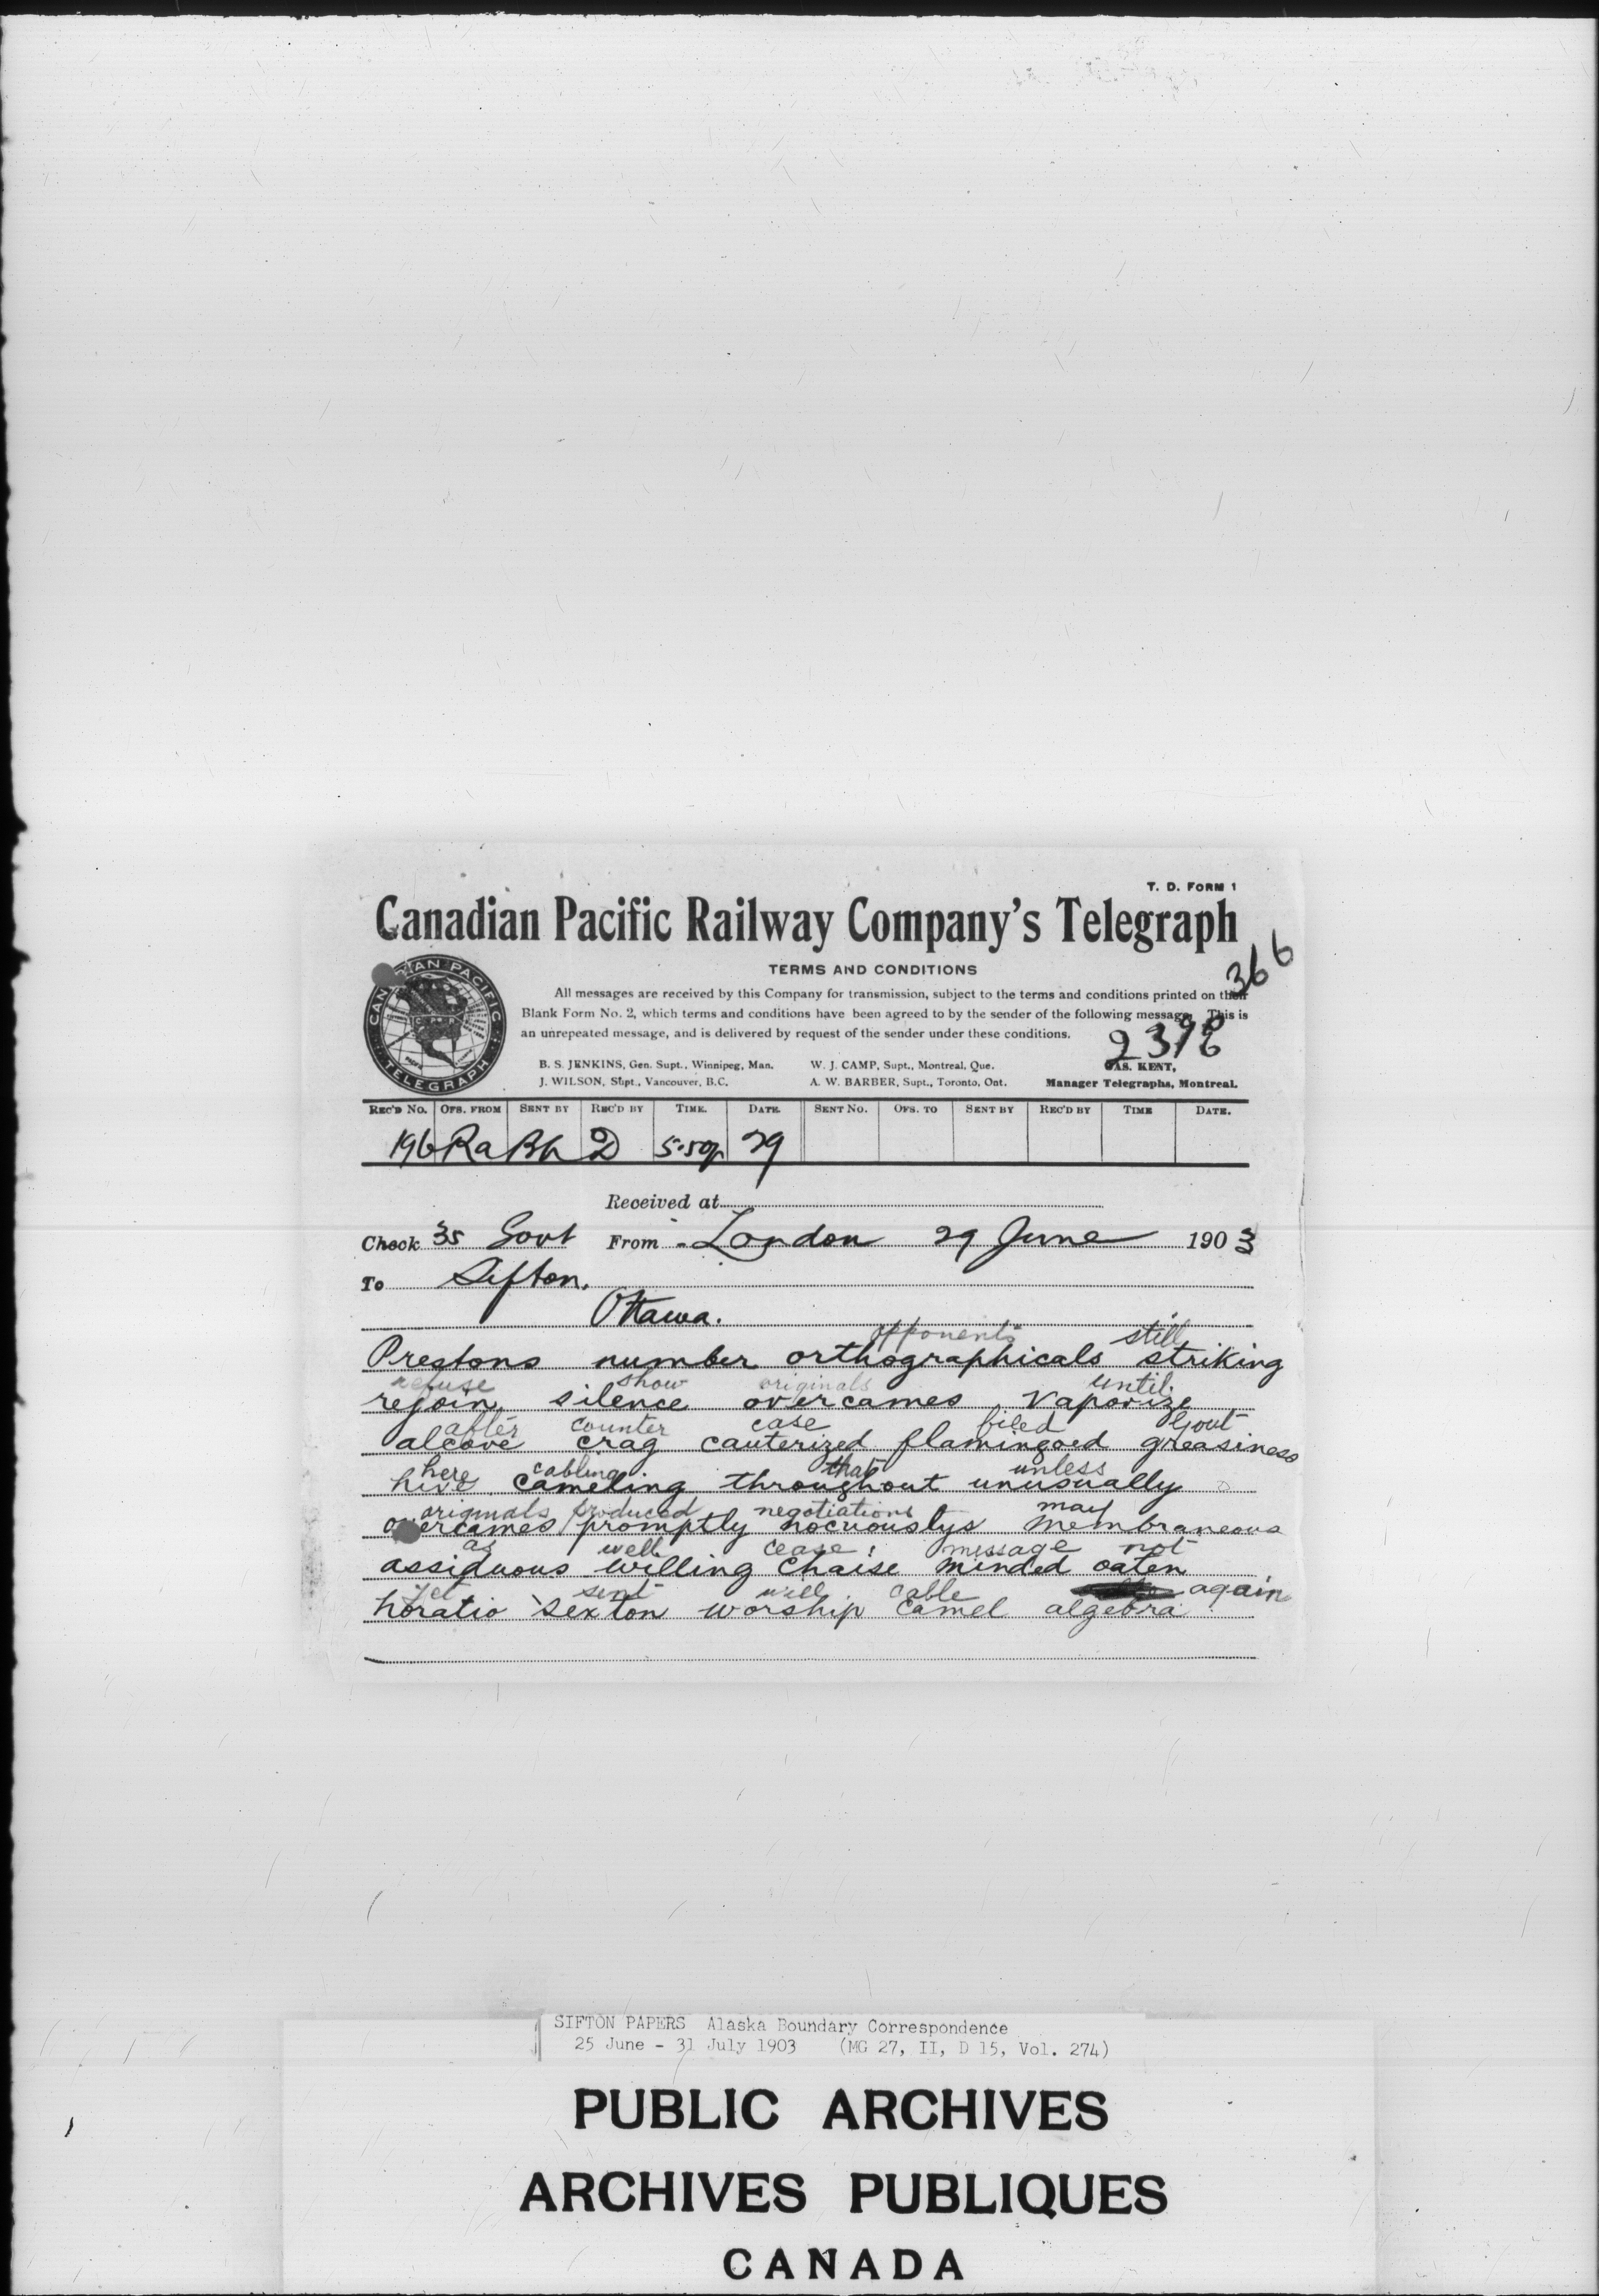 T. D. FORM 1
Canadian Pacific Railway Company's Telegraph
TERMS AND CONDITIONS
366
All messages are received by this Company for transmission, subject to the terms and conditions printed on their
Blank Form No. 2, which terms and conditions have been agreed to by the sender of the following message. This is
an unrepeated message, and is delivered by request of the sender under these conditions.
CANADIAN PACIFIC
TELEGRAPH
B. S. JENKINS, Gen. Supt., Winnipeg, Man. W. J. CAMP, Supt., Montreal, Que. JAS. KENT,
J. WILSON, Supt., Vancouver, B.C. A. W. BARBER, Supt., Toronto, Ont. Manager Telegraphs, Montreal.
REC'D NO. OFS. FROM SENT BY REC'D BY TIME. DATE. SENT NO. OFS. TO SENT BY REC'D BY TIME DATE.
196 Ra Bh D 5.50p 29
Received at
Check 35 Govt From London 29 June 1903
To Sifton.
Ottawa.
opponents still
Prestons number orthographicals striking
refuse show originals until
rejoin silence overcames vaporize
after counter case filed Govt
alcove crag cauterized flamingoed greasiness
here cabling that unless
hive cameling throughout unusually
originals produced negotiations may
overcames promptly nocuouslys membraneous
as well cease message not
assiduous willing chaise minded oaten
yet sent will cable again
horatio sexton worship camel algebra
SIFTON PAPERS Alaska Boundary Correspondence
25 June - 31 July 1903 (MG 27, II, D 15, Vol. 274)
PUBLIC ARCHIVES
ARCHIVES PUBLIQUES
CANADA